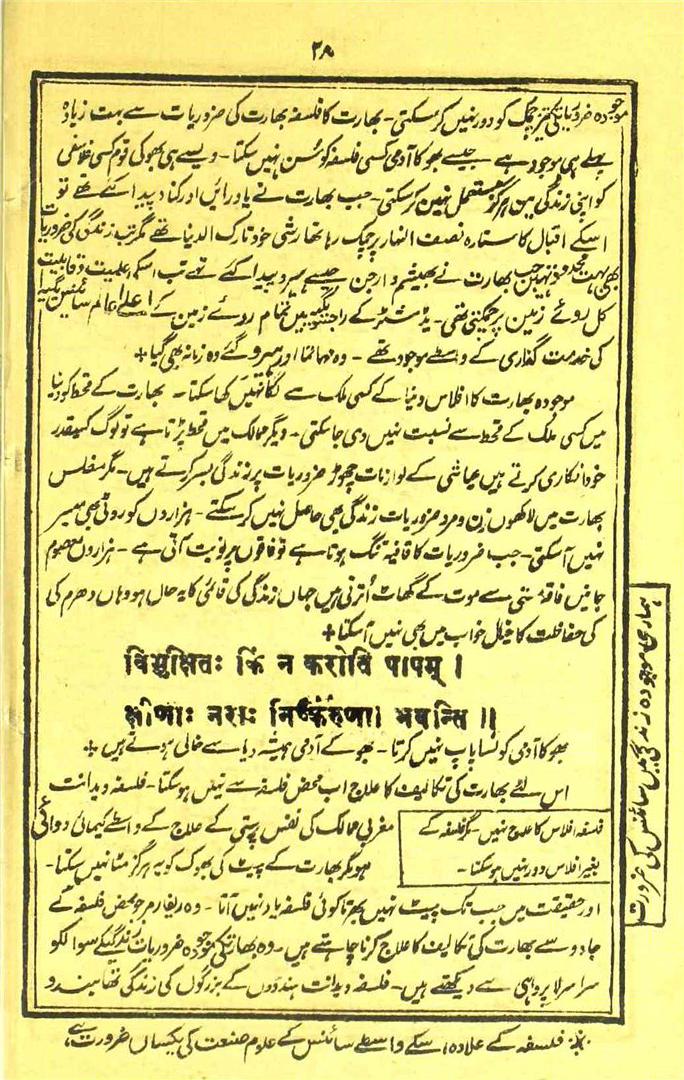 ۲۸
موجودہ ضروریات کی تیز چمک کو دور نہیں کر سکتی۔ بھارت کا فلسفہ بھارت کی ضروریات سے بہت زیادہ
پہلے ہی موجود ہے جیسے بھوکا آدمی کسی فلسفہ کو سُن نہیں سکتا۔ ویسے ہی بھوکی قوم کسی فلاسفی
کو اپنی زندگی میں ہرگز مستعمل نہیں کر سکتی۔ جب بھارت نے یاورائیں اور کناد پیدا کئے تھے تو
اسکے اقبال کا ستارہ نصف النہار پر چمک رہا تھا رشی خود تارک الدنیا تھے مگر تب زندگی کی ضروریات
بھی بہت محدود نہیں جب بھارت نے بھیشم وارجن جیسے ہیرو پیدا کئے تھے تب اسکی علمیت و قابلیت
کل روئے زمین پر چمکتی تھی۔ یڈہشٹر کے راجسو یگیہ میں تمام روئے زمین کے اعلےٰ اعالم سائنس یگیہ
کی خدمت گذاری کے واسطے موجود تھے۔ وہ مہاتما اور ہیرو گئے وہ زمانہ بھی گیا +
موجودہ بھارت کا افلاس دنیا کے کسی ملک سے لگا نہیں کھا سکتا۔ بھارت کے قحط کو دنیا
میں کسی ملک کے قحط سے نسبت نہیں دی جا سکتی۔ دیگر ممالک میں قحط پڑتا ہے تو لوگ کسیقدر
خود انکاری کرتے ہیں عیاشی کے لوازمات چھوڑ ضروریات پر زندگی بسر کرتے ہیں۔ مگر مفلس
بھارت میں لاکھوں زن و مرد ضروریات زندگی بھی حاصل نہیں کر سکتے۔ ہزاروں کو روٹی بھی میسر
نہیں آ سکتی۔ جب ضروریات کا قافیہ تنگ ہوتا ہے تو فاقوں پر نوبت آتی ہے۔ ہزاروں معصوم
جانیں فاقہ مستی سے موت کے گھاٹ اُترتی ہیں جہاں زندگی کی قائمی کا یہ حال ہو وہاں دھرم کی
کی حفاظت کا خیال خواب میں بھی نہیں آ سکتا +
विभुक्षितः किं न करोति पापम् ।
क्षीणाः नराः निष्करुणा भवन्ति ॥
بھوکا آدمی کونسا پاپ نہیں کرتا۔ بھوکے آدمی ہمیشہ دیا سے خالی ہوتے ہیں +
اس لئے بھارت کی تکالیف کا علاج اب محض فلسفہ سے نہیں ہو سکتا۔ فلسفہ ویدانت
فلسفہ افلاس کا علاج نہیں۔ مگر فلسفہ کے
بغیر افلاس دور نہیں ہو سکتا۔
مغربی ممالک کی نفس پرستی کے علاج کے واسطے کیمیائی دوائی
ہو مگر بھارت کے پیٹ کی بھوک کو یہ ہرگز مٹا نہیں سکتا۔
اور حقیقت میں جب تک پیٹ نہیں بھرتا کوئی فلسفہ یاد نہیں آتا۔ وہ ریفارمر جو محض فلسفہ کے
جادو سے بھارت کی تکالیف کا علاج کرنا چاہتے ہیں۔ وہ بھارت کی موجودہ ضروریات زندگی کے سوال کو
سراسر لاپرواہی سے دیکھتے ہیں۔ فلسفہ ویدانت ہندؤوں کے بزرگوں کی زندگی تھا ہندو
ہماری موجودہ زندگی میں سائنس کی ضرورت
فلسفہ کے علاوہ اسکے واسطے سائنس کے علوم صنعت کی یکساں ضرورت ہے